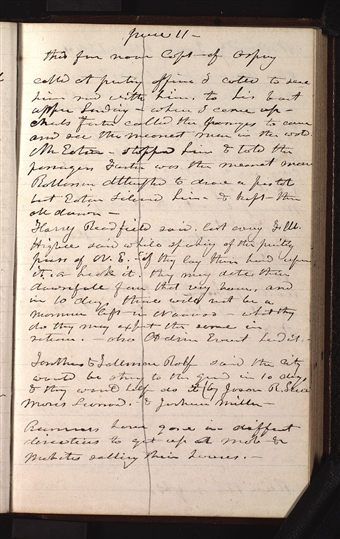 June 11 —
this fore noon Capt of Osprey
called at printing office I called to see
him and with him to his boat
upper landing — when I came up —
Charles Foster called the passengers to come
and see the meanest man in the world
Mr Eaton — stopped him & told the
passengers Foster was the meanest man
Rollosson attempted to draw a pistol
but Eaton silenced him — & kept them
all down —
Harry Redfield said, last evening F. M.
Higbee said while speaking of the printing
press of N. E. — if they lay their hand upon
it, or break it they may date their
downfall from that very hour, and
in 10 days, there will not be a
Mormon left in Nauvoo — what they
do they may expect the same in
return. — also Addison Everett heard it. —
Jonathan & Tallman Rolf said the City
would be strung to the ground in 10 days
& they would help do it (by Jason R. Luce
Moses Leonard. & Joshua Miller —
Runners have gone in different
directions to get up a mob &
Mobites selling their houses. —